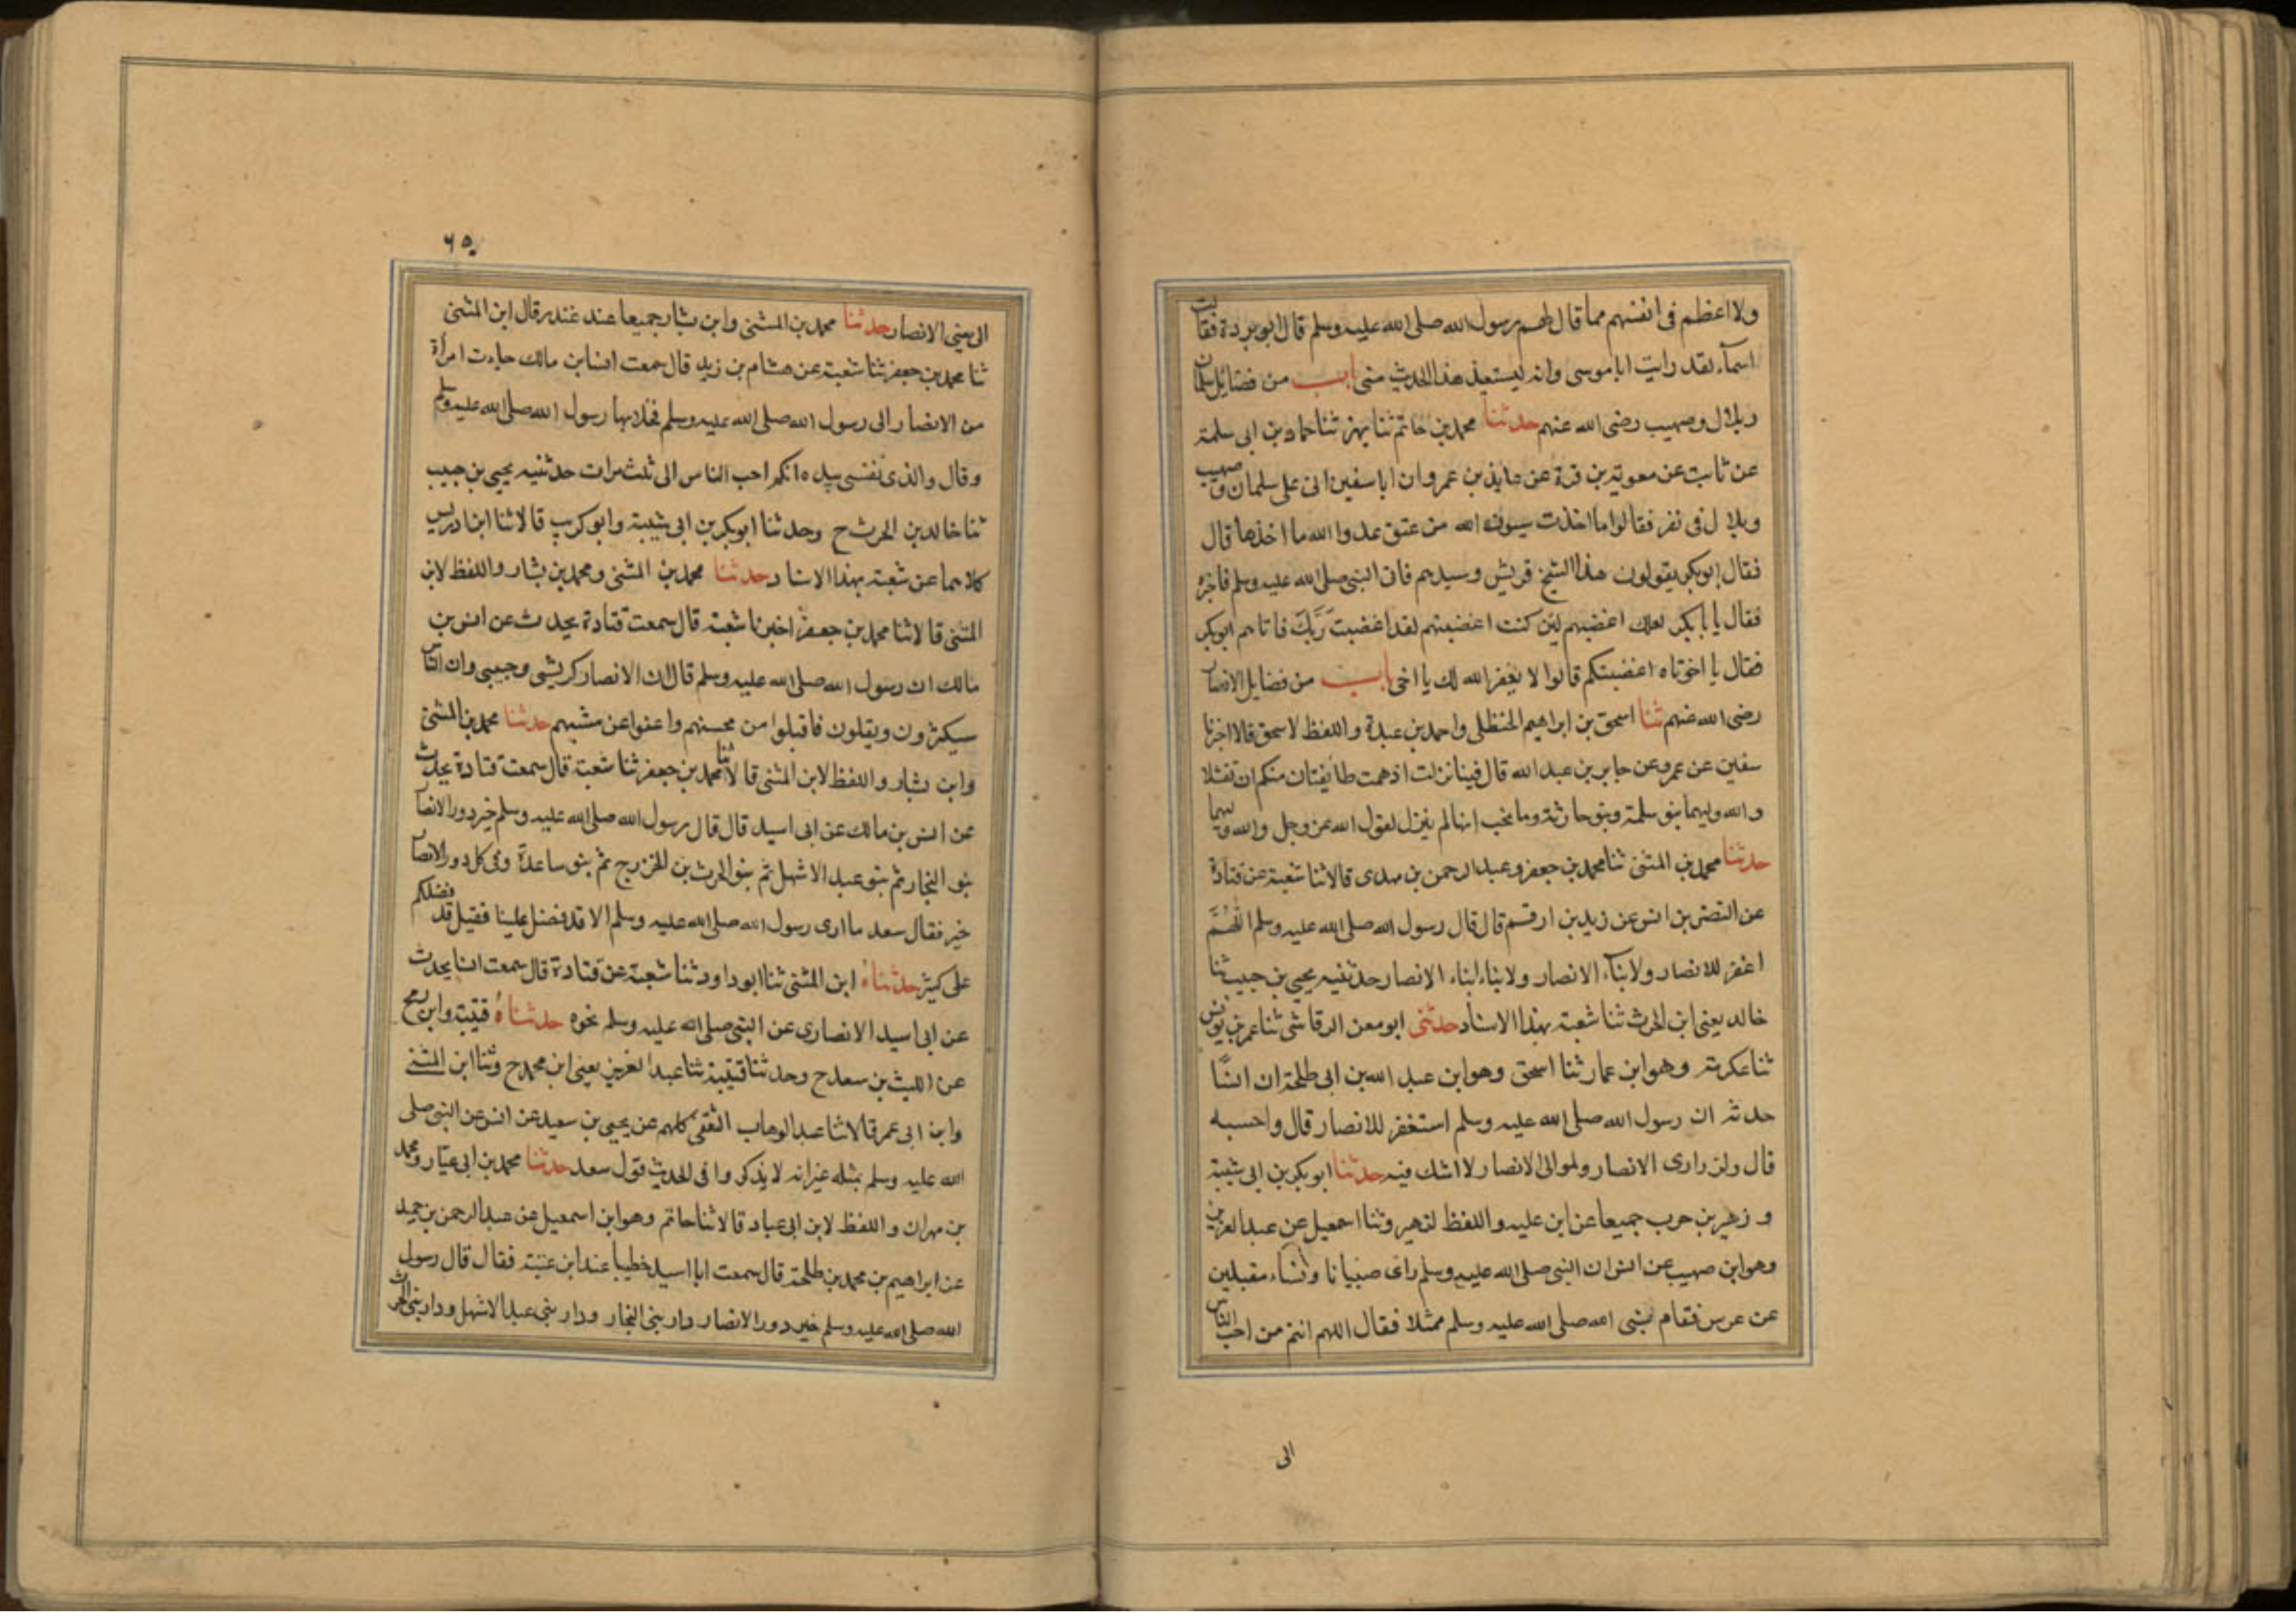 ولا اعظم فى انفسهم مما قال لهم رسول الله صلى الله عليه وسلم قال ابو بردة فقالت
اسمآء لقد رايت ابا موسى وانه ليستعيذ هذا الحديث منى باب من فضائل سلمان
وبلال وصهيب رضى الله عنهم حدثنا محمد بن حاتم ثنا بهز ثنا حماد بن ابى سلمة
عن ثابت عن معوية بن قرة عن عايذ بن عمرو ان ابا سفين اتى على سلمان وصهيب
وبلال فى نفر فقالوا ما اخذت سيوف الله من عنق عدوا الله ما اخذها قال
فقال ابو بكر يقولون هذا الشيخ قريش وسيدهم فاتى النبى صلى الله عليه وسلم فاخبره
فقال يا بابكر لعلك اغضبهم لئن كنت اغضبتهم لقد اغضبت رَبَّكَ فاتاهم ابو بكر
فقال يا اخوتاه اغضبتكم قالوا لا يغفر الله لك يا اخى باب من فضايل الانصار
رضى الله عنهم ثنا اسحق بن ابراهيم الحنظلى واحمد بن عبدة واللفظ لاسحق قالا اخبرنا
سفين عن عمرو عن جابر بن عبد الله قال فينا نزلت اذ همت طايفتان منكم ان تفشلا
والله وليهما بنو سلمة وبنو حارثة وما نحب انها لم ينزل لقول الله عز وجل والله وليهما
حدثنا محمد بن المثنى ثنا محمد بن جعفر وعبد الرحمن بن مهدى قالا ثنا شعبة عن قتادة
عن النضر بن انس عن زيد بن ارقم قال قال رسول الله صلى الله عليه وسلم اللهُمَّ
اغفر للانصار ولابنآء الانصار ولابناء ابناء الانصار حدثنيه يحيى بن حبيب ثنا
خالد يعنى ابن الحرث ثنا شعبة بهذا الاسناد حدثنى ابو معن الرقاشى ثنا عمر بن يونس
ثنا عكرمة وهو ابن عمار ثنا اسحق وهو ابن عبد الله بن ابى طلحة ان انسًا
حدثه ان رسول الله صلى الله عليه وسلم استغفر للانصار قال واحسبه
قال ولذرارى الانصار ولموالى الانصار لا اشك فيه حدثنا ابو بكر بن ابى شيبة
و زهير بن حرب جميعا عن ابن عليه واللفظ لزهير وثنا اسمعيل عن عبد العزيز
وهو ابن صهيب عن انس ان النبى صلى الله عليه وسلم راى صبيانا ونساء مقبلين
عن عرس فقام نبى الله صلى الله عليه وسلم ممثلا فقال اللهم انتم من احب الناس
الى
٦٥
الى يعنى الانصار حدثنا محمد بن المثنى وابن بشار جميعا عند غندر قال ابن المثنى
ثنا محمد بن جعفر ثنا شعبة عن هشام بن زيد قال سمعت انس ابن مالك جاءت امرأة
من الانصار الى رسول الله صلى الله عليه وسلم فخلا بها رسول الله صلى الله عليه وسلم
وقال والذى نفسى بيده انكم احب الناس الى ثلث مرات حدثنيه يحيى بن حبيب
ثنا خالد بن الحرث ح وحدثنا ابو بكر بن ابى شيبة وابو كريب قالا ثنا ابن ادريس
كلاهما عن شعبة بهذا الاسناد حدثنا محمد بن المثنى ومحمد بن بشار واللفظ لابن
المثنى قالا ثنا محمد بن جعفر اخبرنا شعبة قال سمعت قتادة يحدث عن انس بن
مالك ان رسول الله صلى الله عليه وسلم قال ان الانصار كريشى وجيبى وان الناس
سيكثرون ويقلون فاقبلوا من محسنهم واعفوا عن مسيهم حدثنا محمد بن المثنى
وابن بشار واللفظ لابن المثنى قالا ثنا محمد بن جعفر ثنا شعبة قال سمعت قتادة يحدث
عن انس بن مالك عن ابى اسيد قال قال رسول الله صلى الله عليه وسلم خير دور الانصار
بنو النجار ثم بنو عبد الاشهل ثم بنو الحرث بن الخزرج ثم بنو ساعدة وفى كل دور الانصار
خير فقال سعد ما ارى رسول الله صلى الله عليه وسلم الا قد فضل علينا فقيل قد فضلكم
على كثير حدثناه ابن المثنى ثنا ابو داود ثنا شعبة عن قتادة قال سمعت انسا يحدث
عن ابى اسيد الانصارى عن النبى صلى الله عليه وسلم نحوه حدثناهُ قتيبة وابن رمح
عن الليث بن سعد ح وحدثنا قتيبة ثنا عبد العزيز يعنى ابن محمد ح وثنا ابن المثنى
وابن ابى عمر قالا ثنا عبد الوهاب الثقفى كلهم عن يحيى بن سعيد عن انس عن النبى صلى
الله عليه وسلم بمثله غير انه لا يذكر وا فى الحديث قول سعد حدثنا محمد بن ابى عباد ومحمد
بن مهران واللفظ لابن ابى عباد قالا ثنا حاتم وهو ابن اسمعيل عن عبد الرحمن بن حميد
عن ابراهيم بن محمد بن طلحة قال سمعت ابا اسيد خطيبا عند ابن عتبة فقال قال رسول
الله صلى الله عليه وسلم خير دور الانصار دار بنى النجار ودار بنى عبد الاشهل ودار بنى الحرث